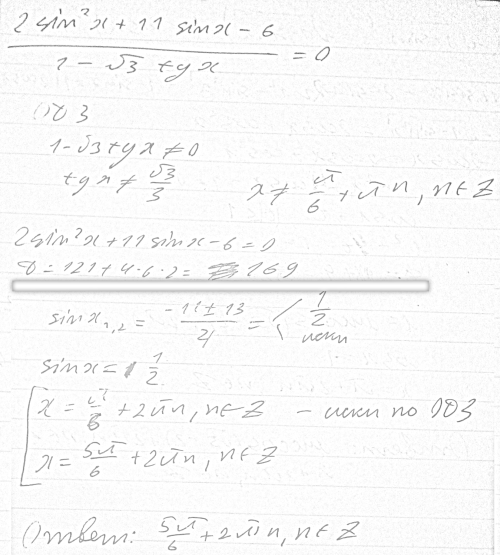 2 sin²x + 11 sinx - 6
1 - √3 tgx
= 0
ОДЗ
1 - √3 tgx ≠ 0
tgx ≠ √3/3
x ≠ π/6 + πn, n ∈ Z
2sin²x + 11 sinx - 6 = 0
D = 121 + 4·6·2 = 169
sinx₁,₂ = (-11 ± 13)/4 = < 1/2
искл
sinx = 1/2
[ x = π/6 + 2πn, n ∈ Z - искл по ОДЗ
x = 5π/6 + 2πn, n ∈ Z
Ответ: 5π/6 + 2πn, n ∈ Z